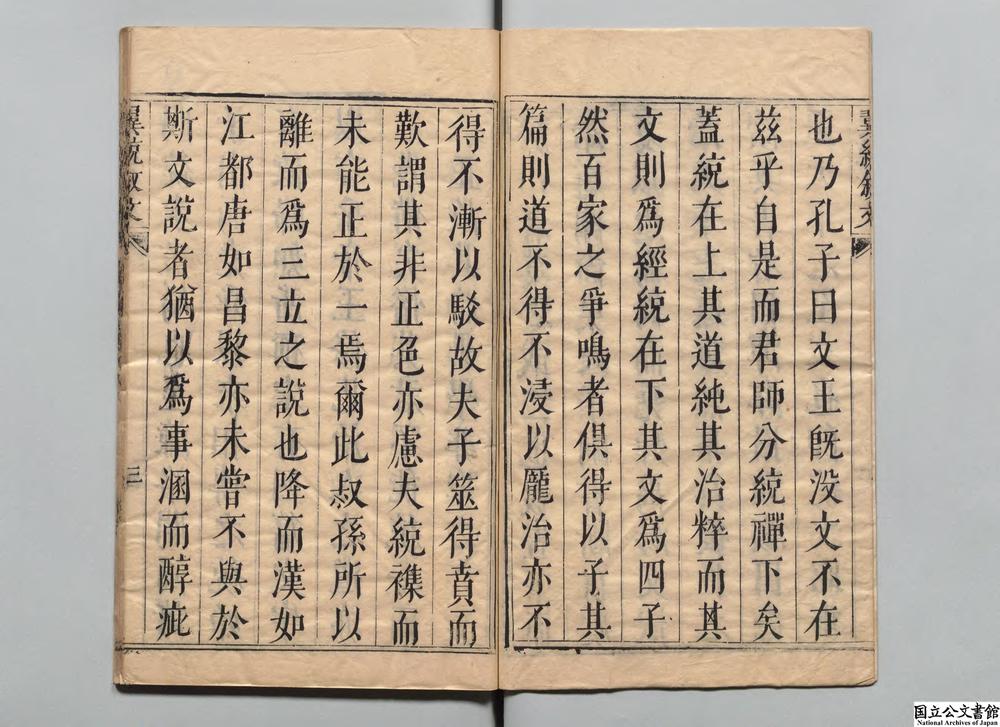 也乃孔子曰文王旣没文不在
玆乎自是而君師分統禪下矣
蓋統在上其道純其治粹而其
文則爲經統在下其文爲四子
然百家之爭鳴者俱得以子其
篇則道不得不浸以龐治亦不
得不漸以駁故夫子筮得賁而
歎謂其非正色亦慮夫統襍而
未能正於一焉爾此叔孫所以
離而爲三立之說也降而漢如
江都唐如昌黎亦未嘗不與於
斯文說者猶以爲事溷而醇疵
三
国立公文書館
National Archives of Japan